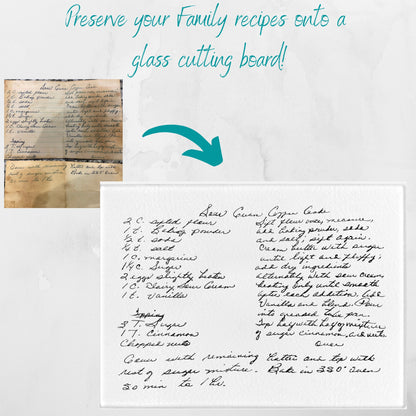 Preserve your Family recipes onto a
glass cutting board!
Sour Cream Coffee Cake
2 C. sifted flour
1 t. Baking powder
½ t. soda
½ t. salt
1 C. margarine
1¼ C. Sugar
2 eggs slightly beaten
1 C. Dairy Sour Cream
1 t. Vanilla
Topping
3 T. Sugar
1 T. Cinnamon
Chopped nuts
Sift flour once, measure,
add baking powder, soda
and salt; sift again.
Cream butter with sugar
until light and fluffy;
add dry ingredients
alternately with sour cream,
beating only until smooth
after each addition. Add
Vanilla and blend. Pour
into greased tube pan.
Top half with half of mixture
of sugar cinnamon, and nuts.
Over
Cover with remaining batter and top with
rest of sugar mixture. Bake in 350° oven
50 min to 1 hr.